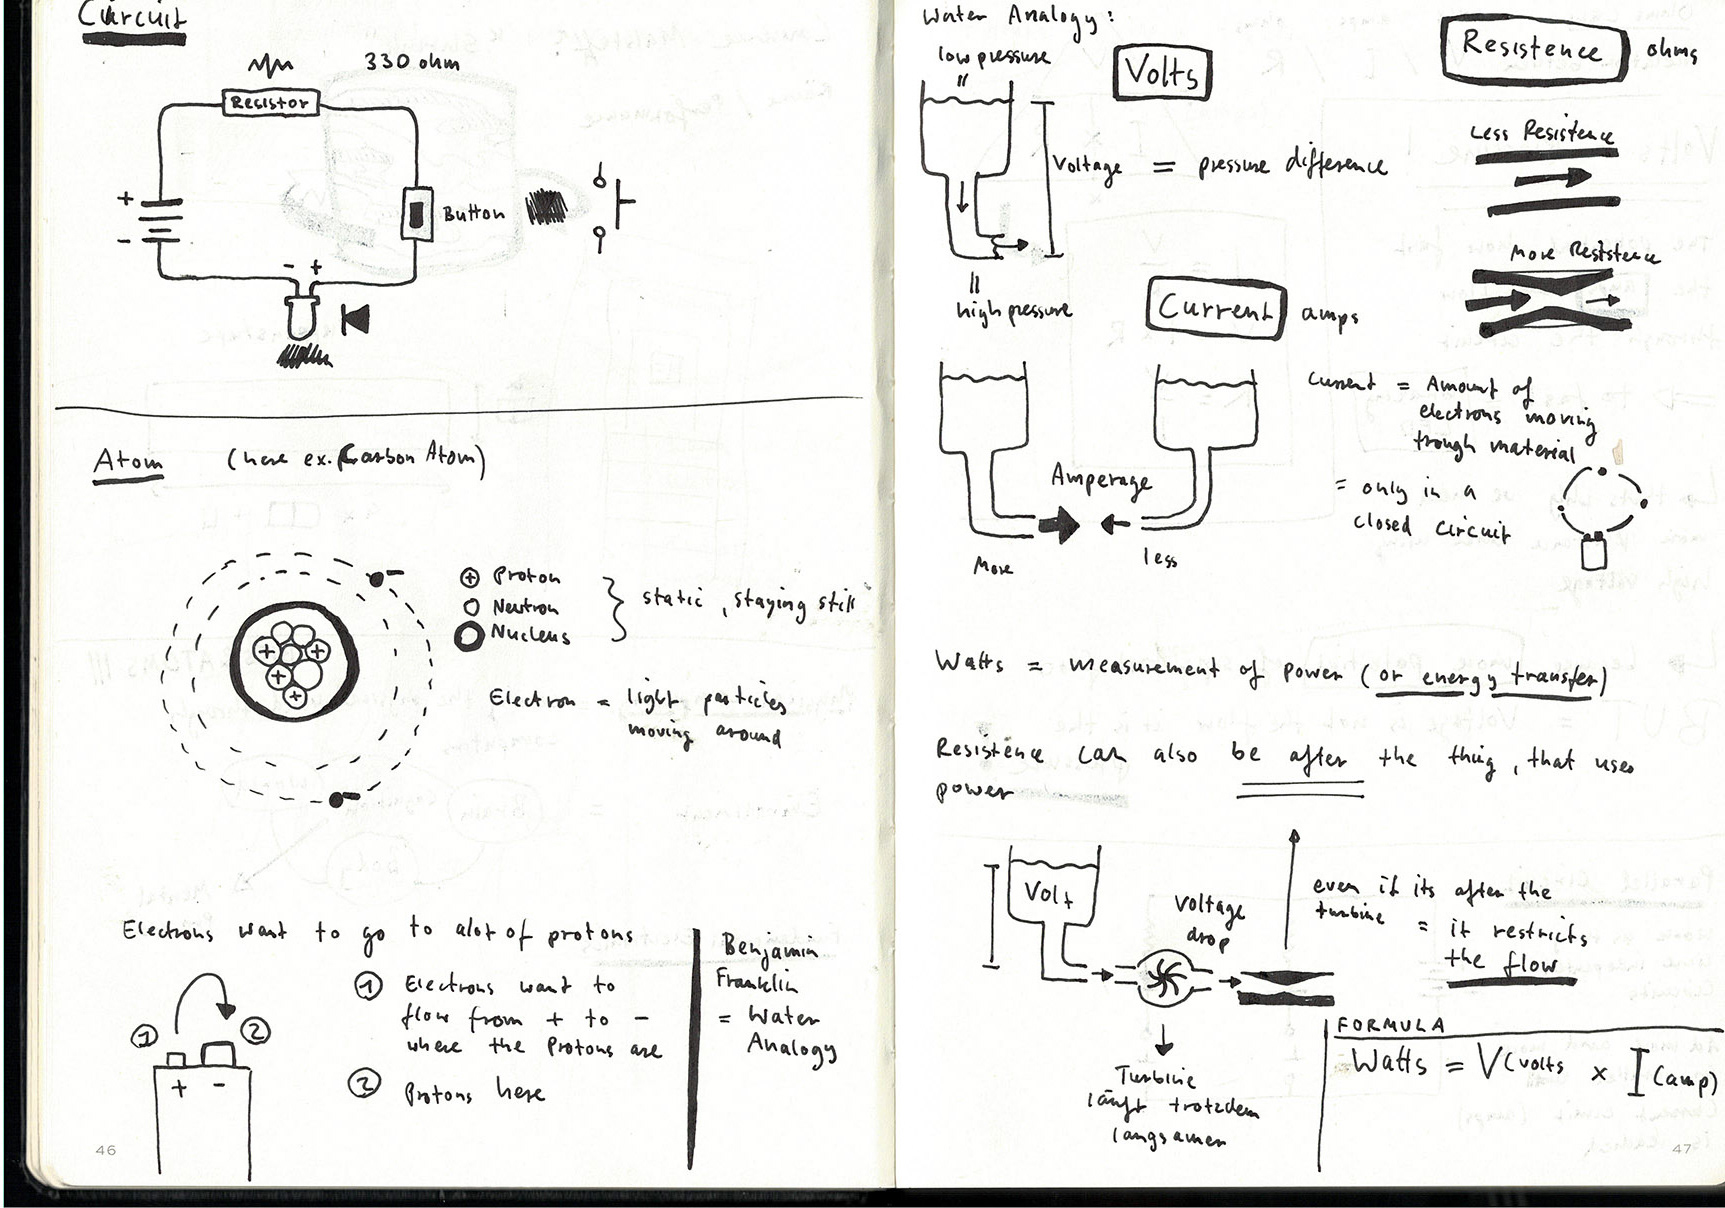 Circuit
330 ohm
Resistor
+
-
Button
- +
Atom (here ex. Carbon Atom)
-
+ Proton
Neutron
Nucleus
static, staying still
+ +
+
+
Electron = light particles
moving around
-
Electrons want to go to alot of protons
1 Electrons want to
flow from + to -
where the Protons are
2 Protons here
1 2
+ -
Benjamin
Franklin
= Water
Analogy
46
Water Analogy:
low pressure
Volts
Voltage = pressure difference
high pressure
Resistence ohms
Less Resistence
More Resistence
Current amps
Amperage
More less
Current = Amount of
electrons moving
trough material
= only in a
closed circuit
Watts = measurement of power (or energy transfer)
Resistence can also be after the thing, that uses
power
Volt
Voltage
drop
even if its after the
turbine = it restricts
the flow
Turbine
läuft trotzdem
langsamer
FORMULA
Watts = V(volts x I (amp)
47